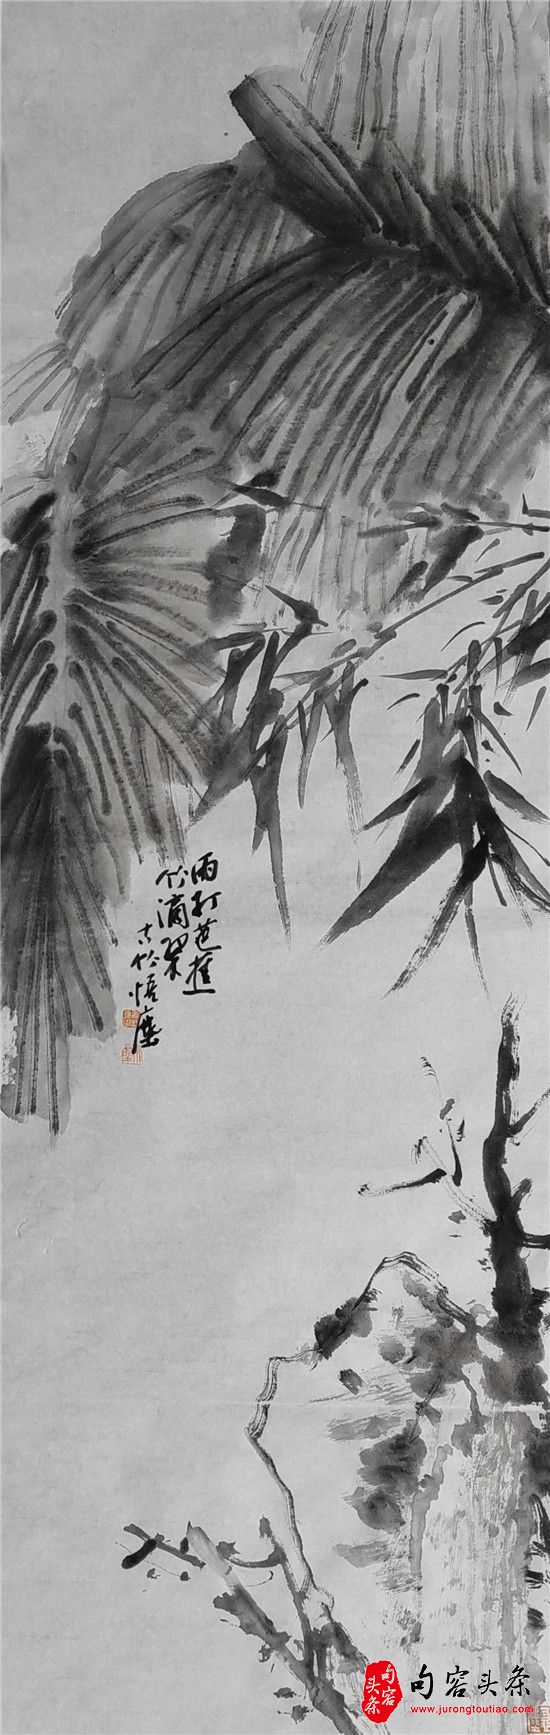 雨打芭蕉
竹滴翠
古竹悟塵
句容
头条
句容头条
www.jurongtoutiao.com